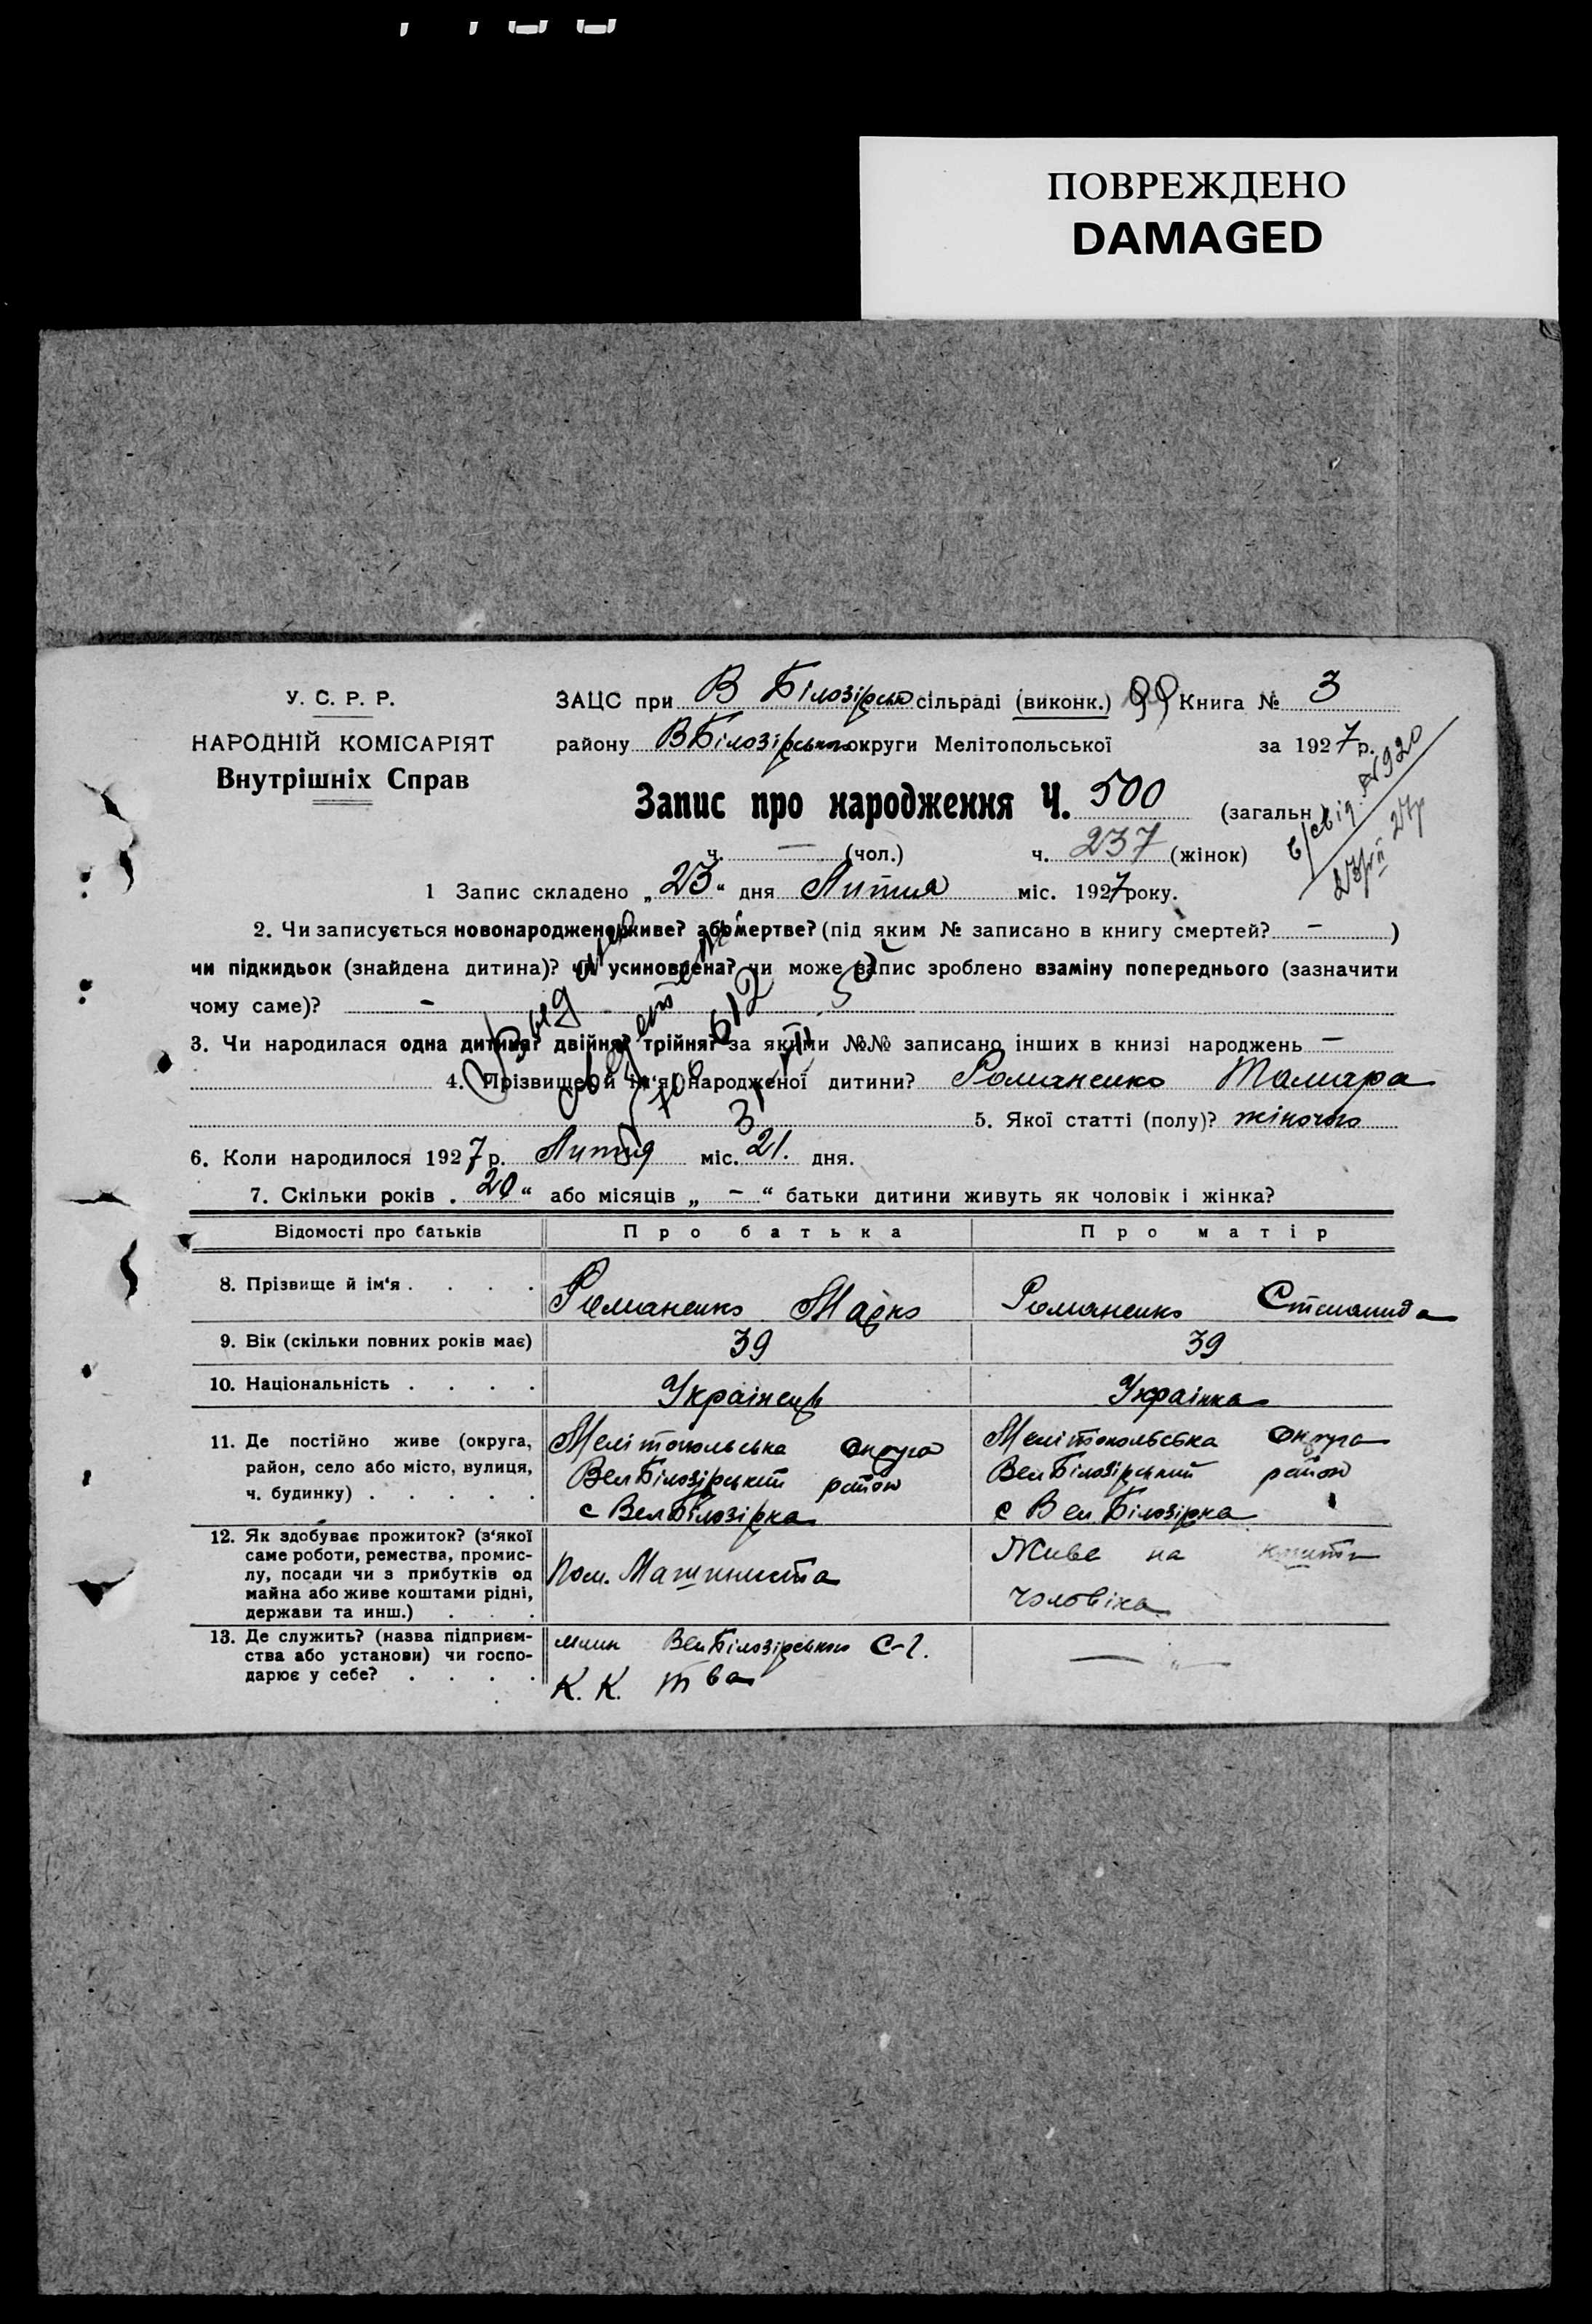 ПОВРЕЖДЕНО
DAMAGED
У. С. Р. Р.
НАРОДНІЙ КОМІСАРІЯТ
Внутрішніх Справ
ЗАЦС при В Білозірськ сільраді (виконк.) Книга № 3
району ВБілозірського округи Мелітопольської за 1927 р.
Запис про народження Ч. 500 (загальн
ч. — (чол.) ч. 237 (жінок)
в/свід. №920
1 Запис складено „23“ дня Липня міс. 1927 року.
2. Чи записується новонароджене живе? або мертве? (під яким № записано в книгу смертей? – )
чи підкидьок (знайдена дитина)? чи усиновлена? чи може запис зроблено взаміну попереднього (зазначити
чому саме)? –
3. Чи народилася одна дитина? двійня? трійня? за якими №№ записано інших в книзі народжень –
4. Прізвище й ім‘я народженої дитини? Романенко Тамара
5. Якої статті (полу)? жіночого
6. Коли народилося 1927 р. Липня міс. 21. дня.
7. Скільки років . 20 “ або місяців „ – “ батьки дитини живуть як чоловік і жінка?
Відомості про батьків Про батька Про матір
8. Прізвище й ім‘я . . . . Романенко Марко Романенко Степанида
9. Вік (скільки повних років має) 39 39
10. Національність . . . . Українець Українка
11. Де постійно живе (округа, Мелітопольська Округа Мелітопольська Округа
район, село або місто, вулиця, Вел Білозірський район Вел Білозірський район
ч. будинку) . . . . . с Вел Білозірка с Вел. Білозірка
12. Як здобуває прожиток? (з‘якої
саме роботи, ремества, промис-
лу, посади чи з прибутків од
майна або живе коштами рідні,
держави та инш.) . . .
Пом. Машиниста
Живе на кошти
чоловіка
13. Де служить? (назва підприєм-
ства або установи) чи госпо-
дарює у себе? . . . .
млин Вел Білозірського С-г.
К. К. т ва
— „ —